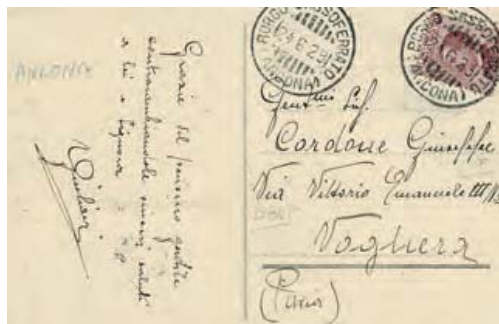 ANCONA
Grazie del pensiero gentile
contraccambiandole sinceri saluti
a lei e Signora
BORGO SASSOFERRATO
24.6.29
(ANCONA)
BORGO SASSOFERRATO
(ANCONA)
Gent.mo Sig.
Cardone Giuseppe
Via Vittorio Emanuele III
Voghera
(Pavia)